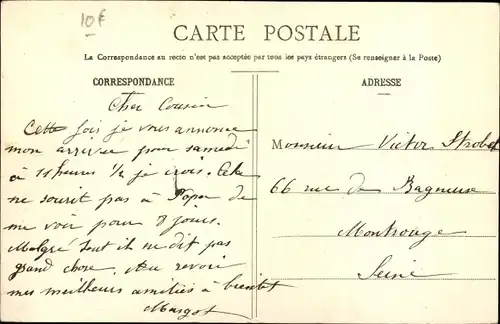 10 F
CARTE POSTALE
La Correspondance au recto n'est pas acceptée par tous les pays étrangers (Se renseigner à la Poste)
CORRESPONDANCE
ADRESSE
Cher Cousin
Cette fois je vous annonce
mon arrivée pour samedi
à 11 heures ½ je crois. Cela
ne sourit pas à Papa de
me voir pour 8 jours.
Malgré tout il ne dit pas
grand chose. Au revoir
mes meilleurs amitiés à bientôt
Margot
Monsieur Victor Strobel
66 rue de Bagneux
Montrouge
Seine